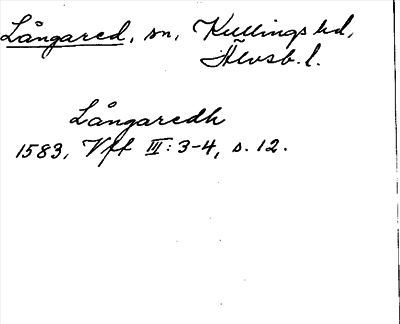 Långared, sn, Kullings hd,
Älvsb. l.
Långaredh
1583, Vff III: 3-4, s. 12.